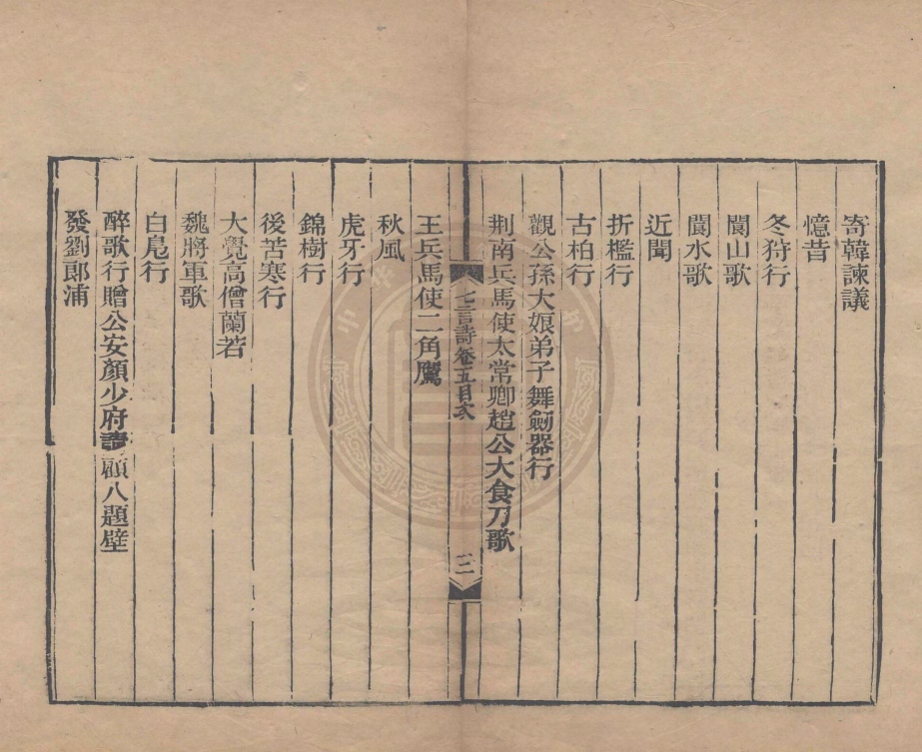 寄韓諫議
憶昔
冬狩行
閬山歌
閬水歌
近聞
折檻行
古柏行
觀公孫大娘弟子舞劒器行
荆南兵馬使太常卿趙公大食刀歌
七言詩卷五目次
三
王兵馬使二角鷹
秋風
虎牙行
錦樹行
後苦寒行
大覺高僧蘭若
魏將軍歌
白鳬行
醉歌行贈公安顏少府請顧八題壁
發劉郞浦